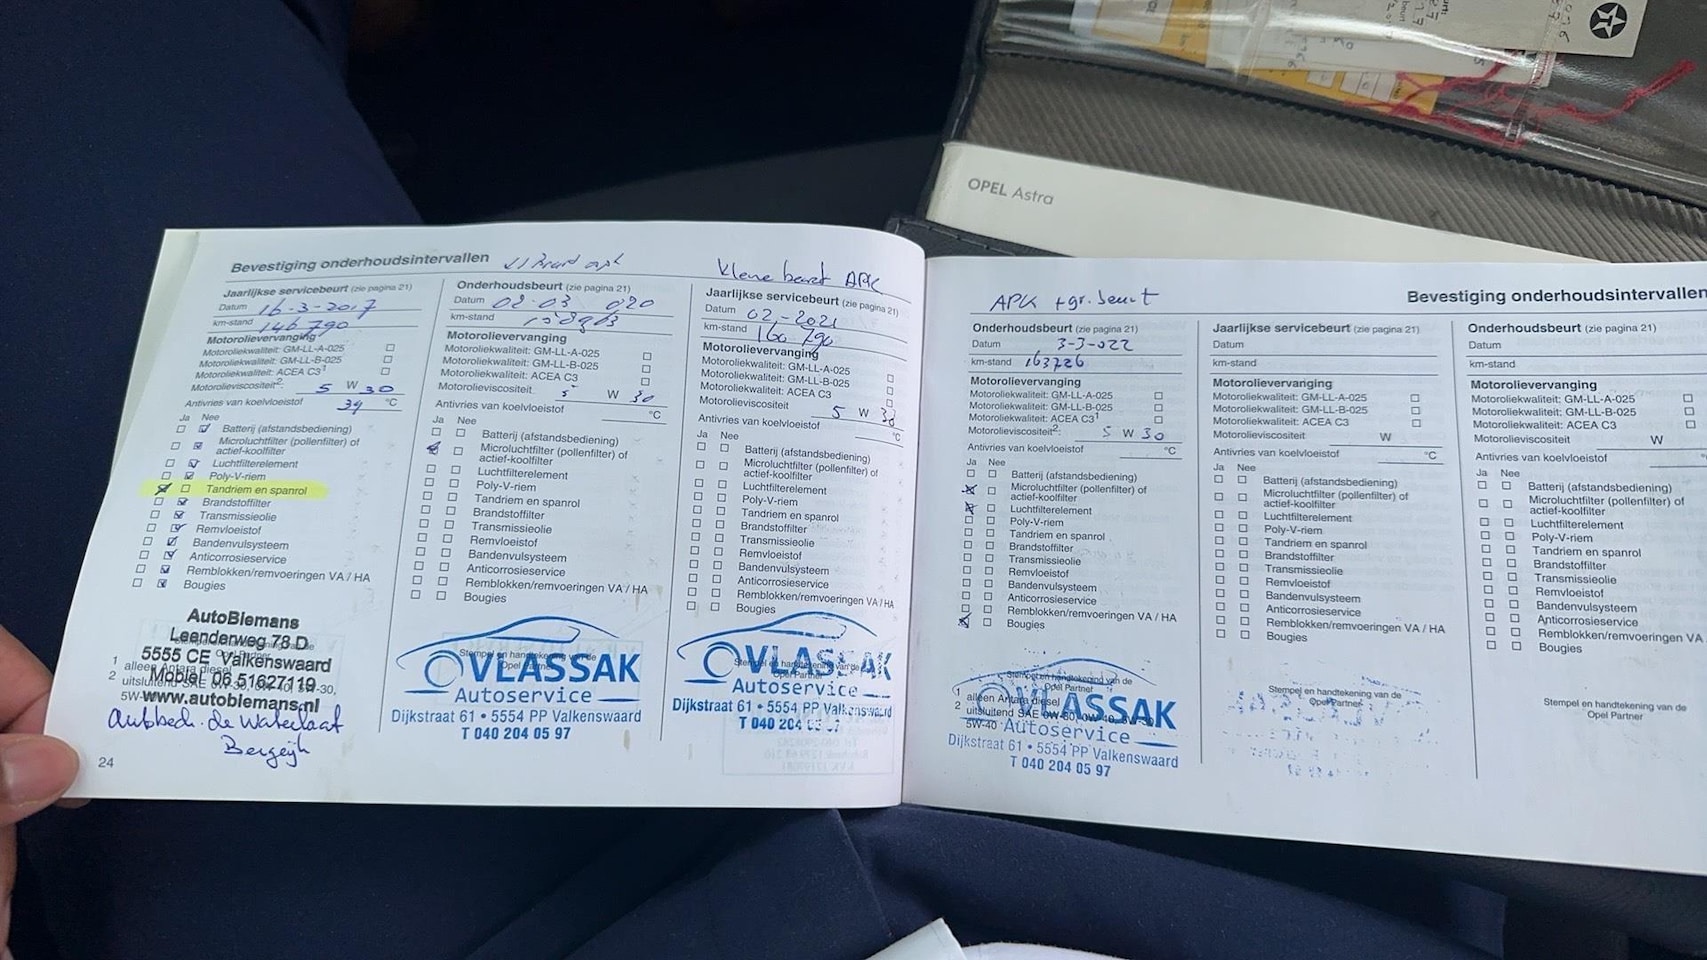 OPEL Astra
Bevestiging onderhoudsintervallen
Jaarlijkse servicebeurt (zie pagina 21)
Datum 16-3-2017
km-stand 146790
Motorolievervanging
Motoroliekwaliteit: GM-LL-A-025
Motoroliekwaliteit: GM-LL-B-025
Motoroliekwaliteit: ACEA C3¹
Motorolieviscositeit² 5 W 30
Antivries van koelvloeistof 39 °C
Ja Nee
Batterij (afstandsbediening)
Microluchtfilter (pollenfilter) of
actief-koolfilter
Luchtfilterelement
Poly-V-riem
Tandriem en spanrol
Brandstoffilter
Transmissieolie
Remvloeistof
Bandenvulsysteem
Anticorrosieservice
Remblokken/remvoeringen VA / HA
Bougies
AutoBlemans
Leenderweg 78 D
5555 CE Valkenswaard
Mobiel 06 51627119
www.autoblemans.nl
1 alleen Antara diesel
2
Bergeijk
24
Onderhoudsbeurt (zie pagina 21)
Datum 02-03 020
km-stand
Motorolievervanging
Motoroliekwaliteit: GM-LL-A-025
Motoroliekwaliteit: GM-LL-B-025
Motoroliekwaliteit: ACEA C3
Motorolieviscositeit 5 W 30
Antivries van koelvloeistof °C
Ja Nee
Batterij (afstandsbediening)
Microluchtfilter (pollenfilter) of
actief-koolfilter
Luchtfilterelement
Poly-V-riem
Tandriem en spanrol
Brandstoffilter
Transmissieolie
Remvloeistof
Bandenvulsysteem
Anticorrosieservice
Remblokken/remvoeringen VA / HA
Bougies
Stempel en handtekening van de
Opel Partner
VLASSAK
Autoservice
Dijkstraat 61 • 5554 PP Valkenswaard
T 040 204 05 97
APK
Jaarlijkse servicebeurt (zie pagina 21)
Datum 02-2021
km-stand 160 790
Motorolievervanging
Motoroliekwaliteit: GM-LL-A-025
Motoroliekwaliteit: GM-LL-B-025
Motoroliekwaliteit: ACEA C3
Motorolieviscositeit 5 W 30
Antivries van koelvloeistof °C
Ja Nee
Batterij (afstandsbediening)
Microluchtfilter (pollenfilter) of
actief-koolfilter
Luchtfilterelement
Poly-V-riem
Tandriem en spanrol
Brandstoffilter
Transmissieolie
Remvloeistof
Bandenvulsysteem
Anticorrosieservice
Remblokken/remvoeringen VA / HA
Bougies
Stempel en handtekening van de
Opel Partner
VLASSAK
Autoservice
Dijkstraat 61 • 5554 PP Valkenswaard
T 040 204 05 97
APK + gr. beurt
Bevestiging onderhoudsintervallen
Onderhoudsbeurt (zie pagina 21)
Datum 3-3-022
km-stand 163726
Motorolievervanging
Motoroliekwaliteit: GM-LL-A-025
Motoroliekwaliteit: GM-LL-B-025
Motoroliekwaliteit: ACEA C3¹
Motorolieviscositeit²: 5 W 30
Antivries van koelvloeistof °C
Ja Nee
Batterij (afstandsbediening)
Microluchtfilter (pollenfilter) of
actief-koolfilter
Luchtfilterelement
Poly-V-riem
Tandriem en spanrol
Brandstoffilter
Transmissieolie
Remvloeistof
Bandenvulsysteem
Anticorrosieservice
Remblokken/remvoeringen VA / HA
Bougies
Stempel en handtekening van de
Opel Partner
1 alleen Antara diesel
2 uitsluitend SAE 0W-30, 0W-40, 5W-30,
5W-40
VLASSAK
Autoservice
Dijkstraat 61 • 5554 PP Valkenswaard
T 040 204 05 97
Jaarlijkse servicebeurt (zie pagina 21)
Datum
km-stand
Motorolievervanging
Motoroliekwaliteit: GM-LL-A-025
Motoroliekwaliteit: GM-LL-B-025
Motoroliekwaliteit: ACEA C3
Motorolieviscositeit W
Antivries van koelvloeistof °C
Ja Nee
Batterij (afstandsbediening)
Microluchtfilter (pollenfilter) of
actief-koolfilter
Luchtfilterelement
Poly-V-riem
Tandriem en spanrol
Brandstoffilter
Transmissieolie
Remvloeistof
Bandenvulsysteem
Anticorrosieservice
Remblokken/remvoeringen VA / HA
Bougies
Stempel en handtekening van de
Opel Partner
Onderhoudsbeurt (zie pagina 21)
Datum
km-stand
Motorolievervanging
Motoroliekwaliteit: GM-LL-A-025
Motoroliekwaliteit: GM-LL-B-025
Motoroliekwaliteit: ACEA C3
Motorolieviscositeit W
Antivries van koelvloeistof
Ja Nee
Batterij (afstandsbediening)
Microluchtfilter (pollenfilter) of
actief-koolfilter
Luchtfilterelement
Poly-V-riem
Tandriem en spanrol
Brandstoffilter
Transmissieolie
Remvloeistof
Bandenvulsysteem
Anticorrosieservice
Remblokken/remvoeringen VA
Bougies
Stempel en handtekening van de
Opel Partner